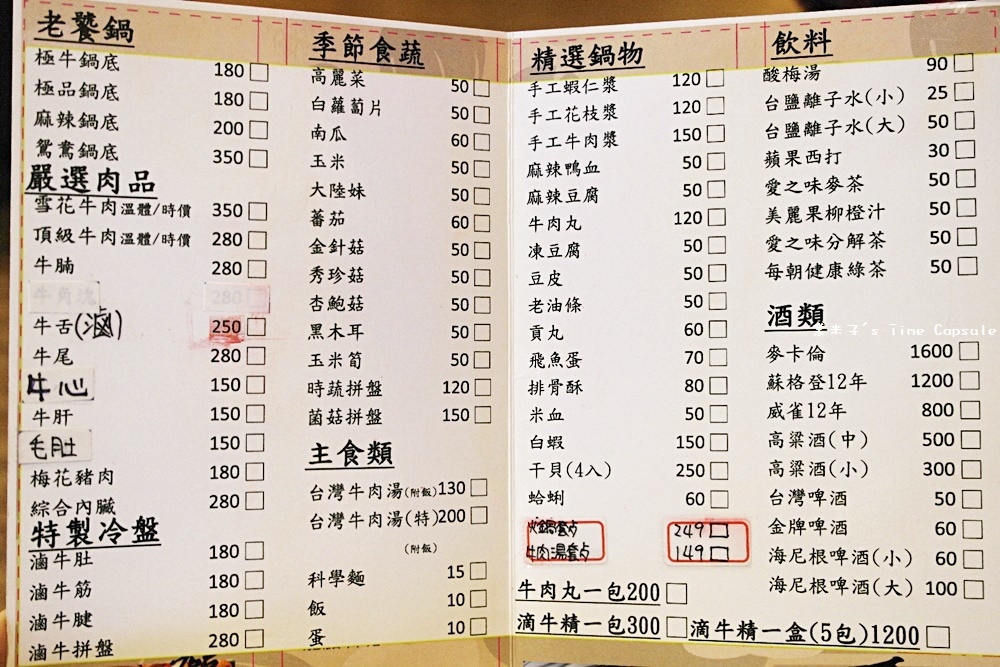 老饕鍋
極牛鍋底 180
極品鍋底 180
麻辣鍋底 200
鴛鴦鍋底 350
嚴選肉品
雪花牛肉溫體/時價 350
頂級牛肉溫體/時價 280
牛腩 280
牛角塊 280
牛舌(滷) 250
牛尾 280
牛心 150
牛肝 150
毛肚 150
梅花豬肉 180
綜合內臟 280
特製冷盤
滷牛肚 180
滷牛筋 180
滷牛腱 180
滷牛拼盤 280
季節食蔬
高麗菜 50
白蘿蔔片 50
南瓜 60
玉米 50
大陸妹 50
蕃茄 60
金針菇 50
秀珍菇 50
杏鮑菇 50
黑木耳 50
玉米筍 50
時蔬拼盤 120
菌菇拼盤 150
主食類
台灣牛肉湯(附飯) 130
台灣牛肉湯(特) 200
(附飯)
科學麵 15
飯 10
蛋 10
精選鍋物
手工蝦仁漿 120
手工花枝漿 120
手工牛肉漿 150
麻辣鴨血 50
麻辣豆腐 50
牛肉丸 120
凍豆腐 50
豆皮 50
老油條 50
貢丸 60
飛魚蛋 70
排骨酥 80
米血 50
白蝦 150
干貝(4入) 250
蛤蜊 60
火鍋套点 249
牛肉湯套点 149
牛肉丸一包200
滴牛精一包300
滴牛精一盒(5包)1200
飲料
酸梅湯 90
台鹽離子水(小) 25
台鹽離子水(大) 50
蘋果西打 30
愛之味麥茶 50
美麗果柳橙汁 50
愛之味分解茶 50
每朝健康綠茶 50
酒類
麥卡倫 1600
蘇格登12年 1200
威雀12年 800
高粱酒(中) 500
高粱酒(小) 300
台灣啤酒 50
金牌啤酒 60
海尼根啤酒(小) 60
海尼根啤酒(大) 100
米子's Time Capsule